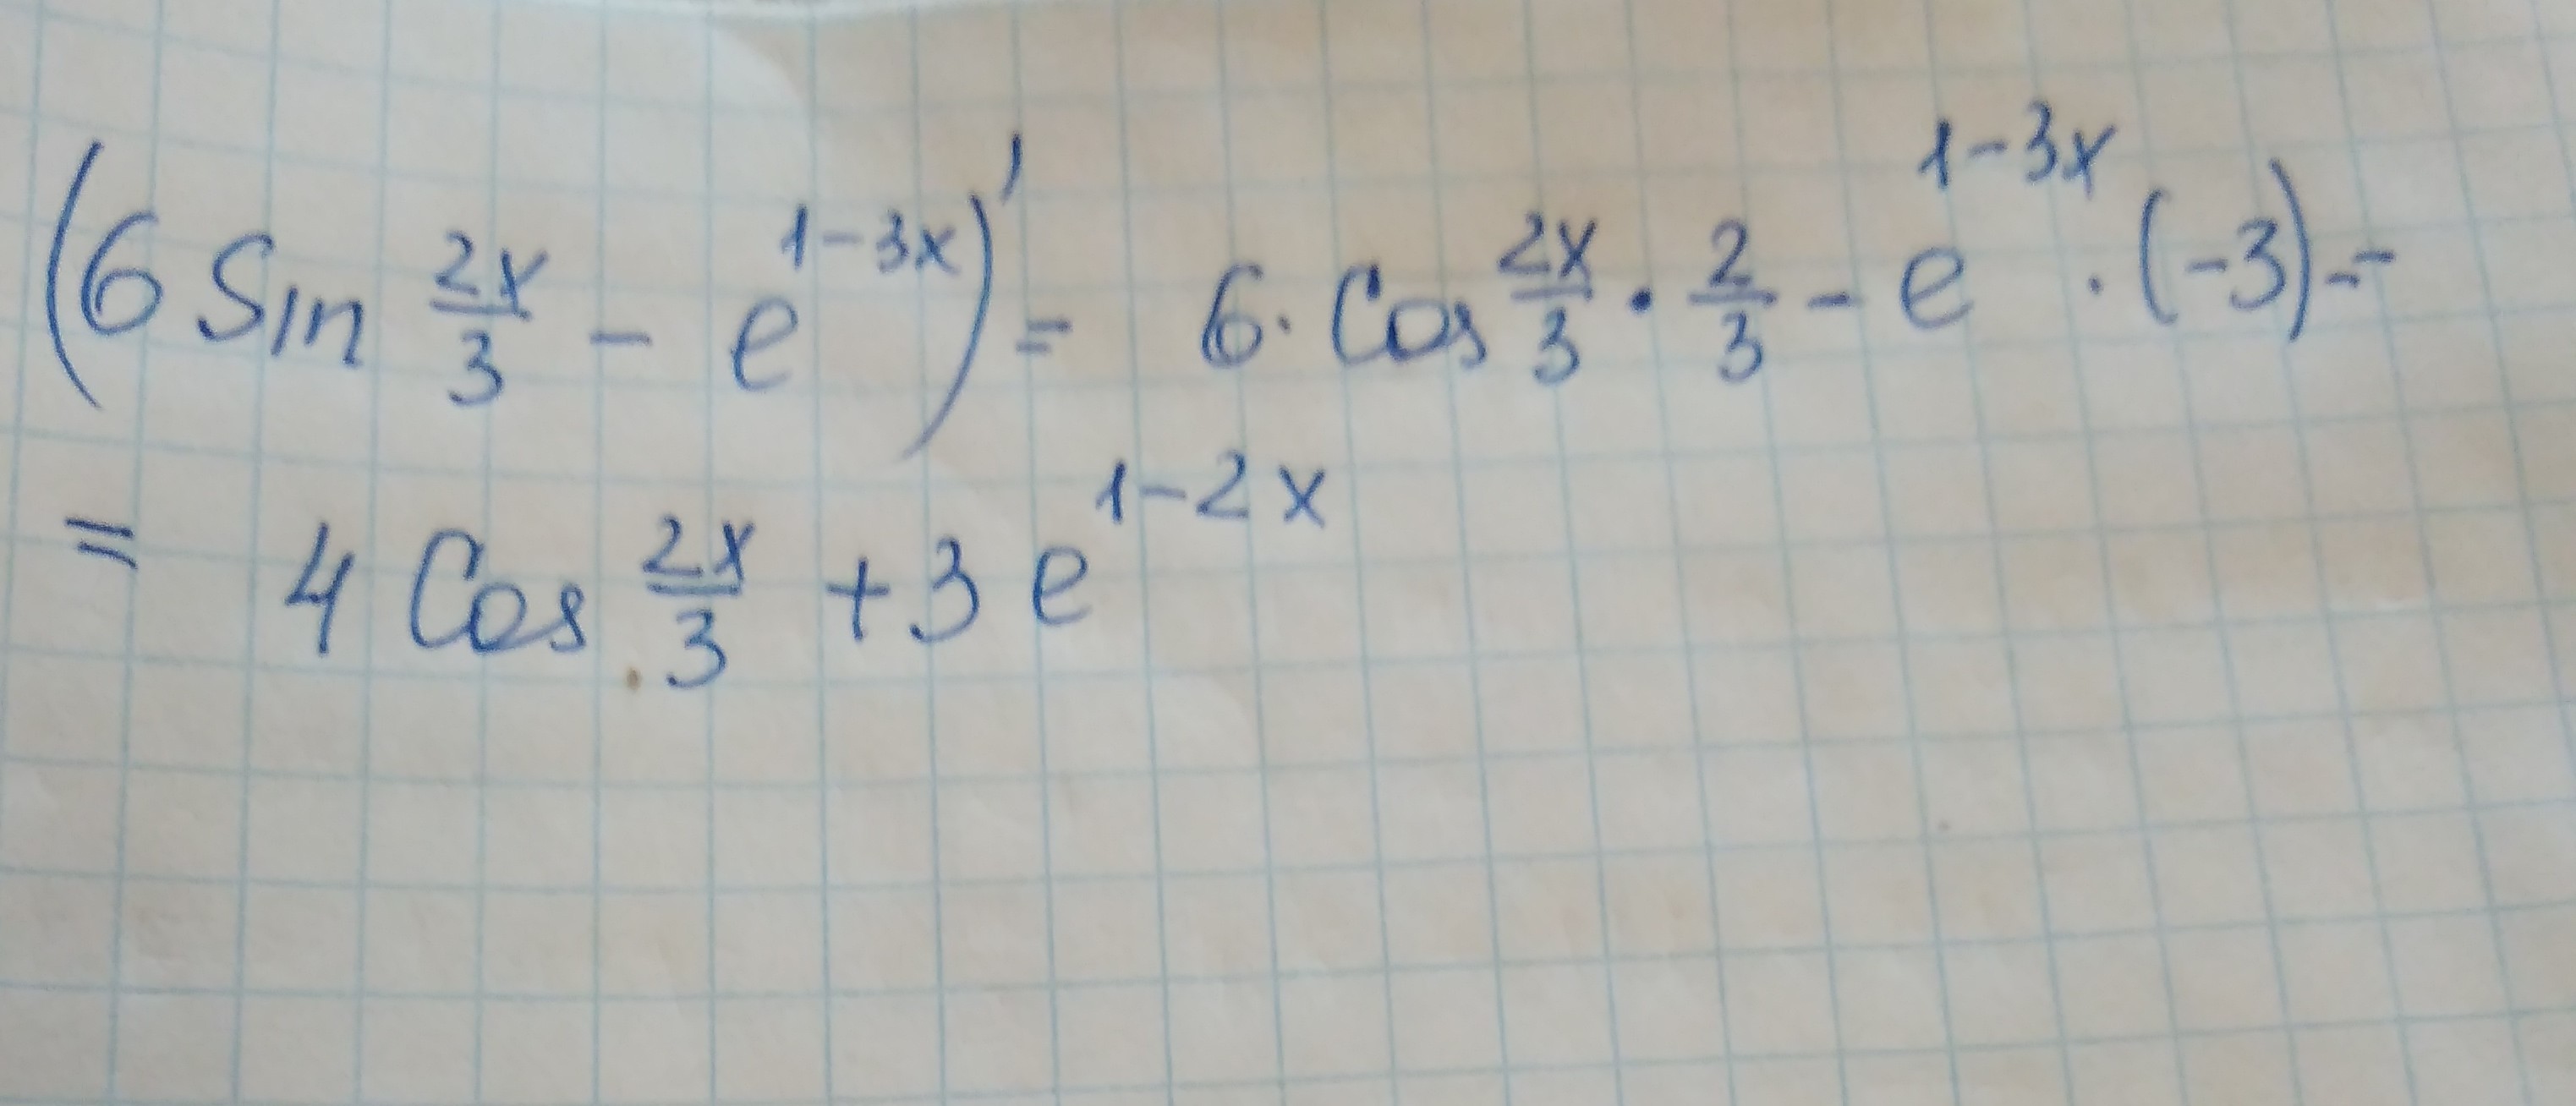 (6 Sin 2x/3 - e^{1-3x})' = 6 · Cos 2x/3 · 2/3 - e^{1-3x} · (-3) =
= 4 Cos 2x/3 + 3 e^{1-2x}